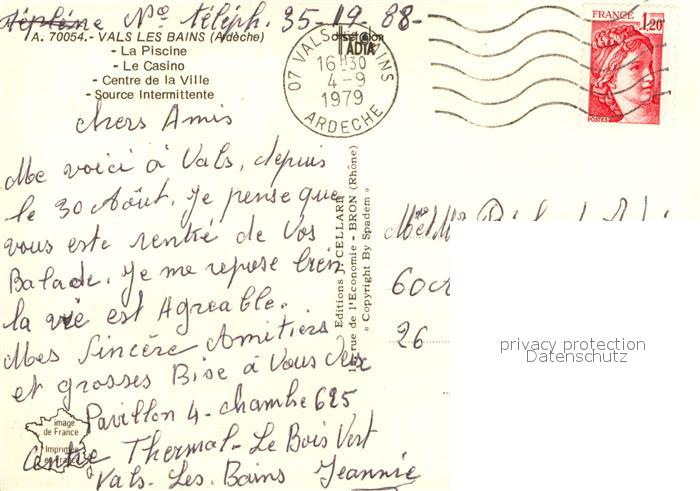 Téléphone Nº téléph. 35-19 88-
A. 70054.- VALS LES BAINS (Ardèche)
- La Piscine
- Le Casino
- Centre de la Ville
- Source Intermittente
chers Amis
Me voici à Vals, depuis
le 30 Août, je pense que
vous este rentré de Vos
Balade, je me repose bien
la vie est Agreable.
Mes Sincère Amitiers
et grosses Bise à Vous deux
Pavillon 4 - chambre 625
Centre Thermal - Le Bois Vert
Vals. Les. Bains Jeannie
image
de France
Imprimé
Editions J. CELLARD
rue de l'Economie - BRON (Rhône)
« Copyright By Spadem »
ADIA
07 VALS BAINS
16H30
4-9
1979
ARDECHE
FRANCE
1,20
POSTES
60
26
privacy protection
Datenschutz